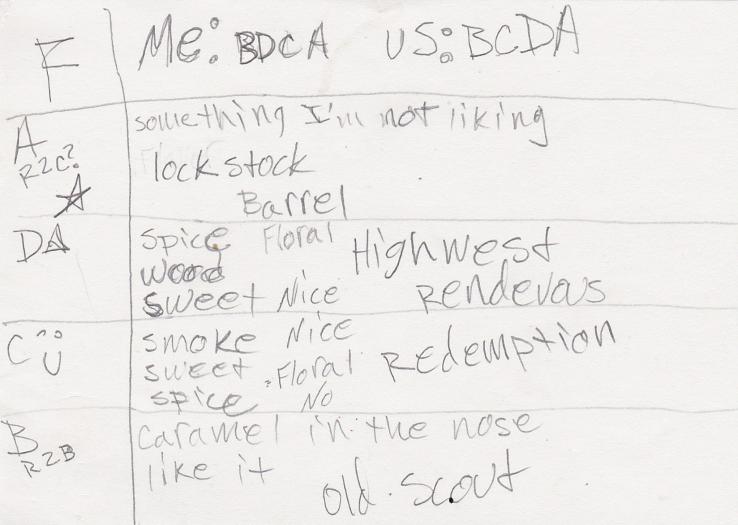 F Me: BDCA US: BCDA
A something I'm not liking
R2C? lock stock
Barrel
DA spice Floral Highwest
wood
sweet Nice Rendevous
C smoke Nice
sweet Floral Redemption
spice No
B caramel in the nose
R2B like it
old scout